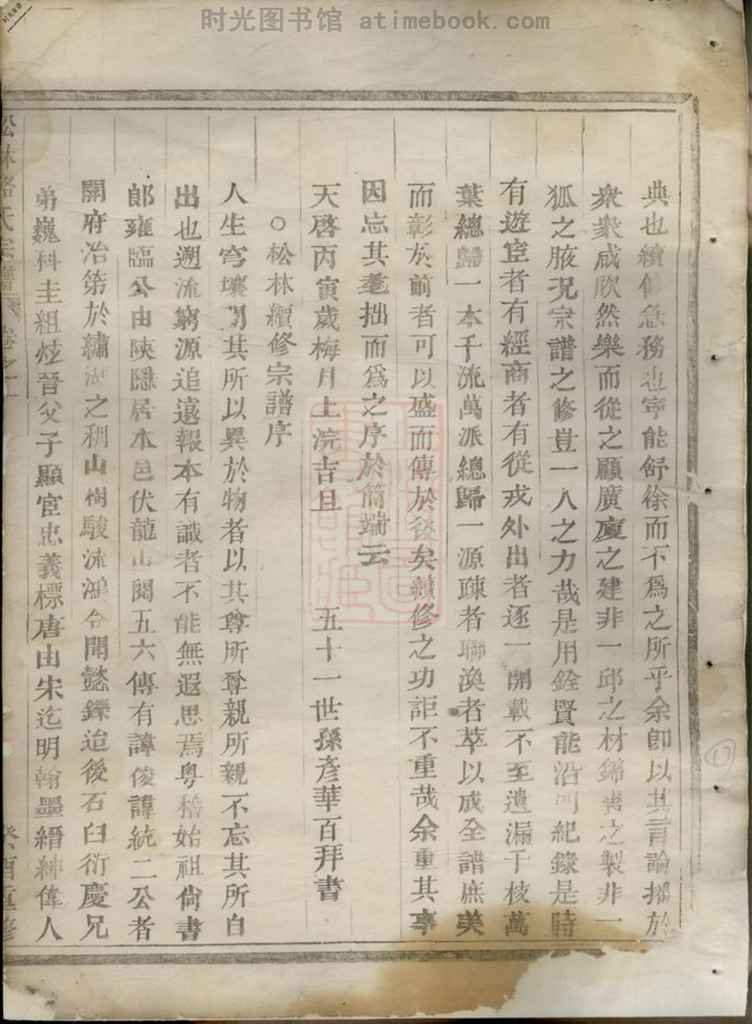 时光图书馆 atimebook.com
典也續修急務也寧能舒徐而不爲之所乎余卽以其言論播於
衆衆咸欣然樂而從之顧廣廈之建非一邱之材錦裘之製非一
狐之腋況宗譜之修豈一人之力哉是用銓賢能沿河紀錄是時
有遊宦者有經商者有從戎外出者逐一開載不至遺漏千枝萬
葉總歸一本千流萬派總歸一源疎者聯渙者萃以成全譜庶美
而彰於前者可以盛而傳於後矣續修之功詎不重哉余重其事
因忘其耄拙而爲之序於簡端云
天啓丙寅歲梅月上浣吉旦 五十一世孫彥華百拜書
○松林續修宗譜序
人生穹壤間其所以異於物者以其尊所尊親所親不忘其所自
出也遡流窮源追遠報本有識者不能無遐思焉粵稽始祖尙書
郎雍臨公由陝隱居本邑伏龍山閱五六傳有諱俊諱統二公者
開府冶第於繡湖之稠山樹駿流鴻令聞懿鑠迨後石臼衍慶兄
弟巍科圭組炫晉父子顯宦忠義標唐由宋迄明翰墨縉紳偉人
松林駱氏宗譜 卷之一 癸酉重修